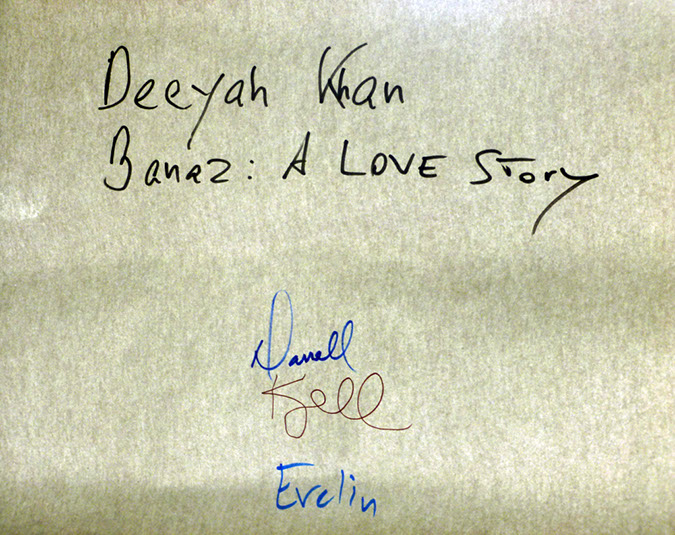 Deeyah Khan
Banaz: A LOVE STORY
Darrell
Kjell
Evelin